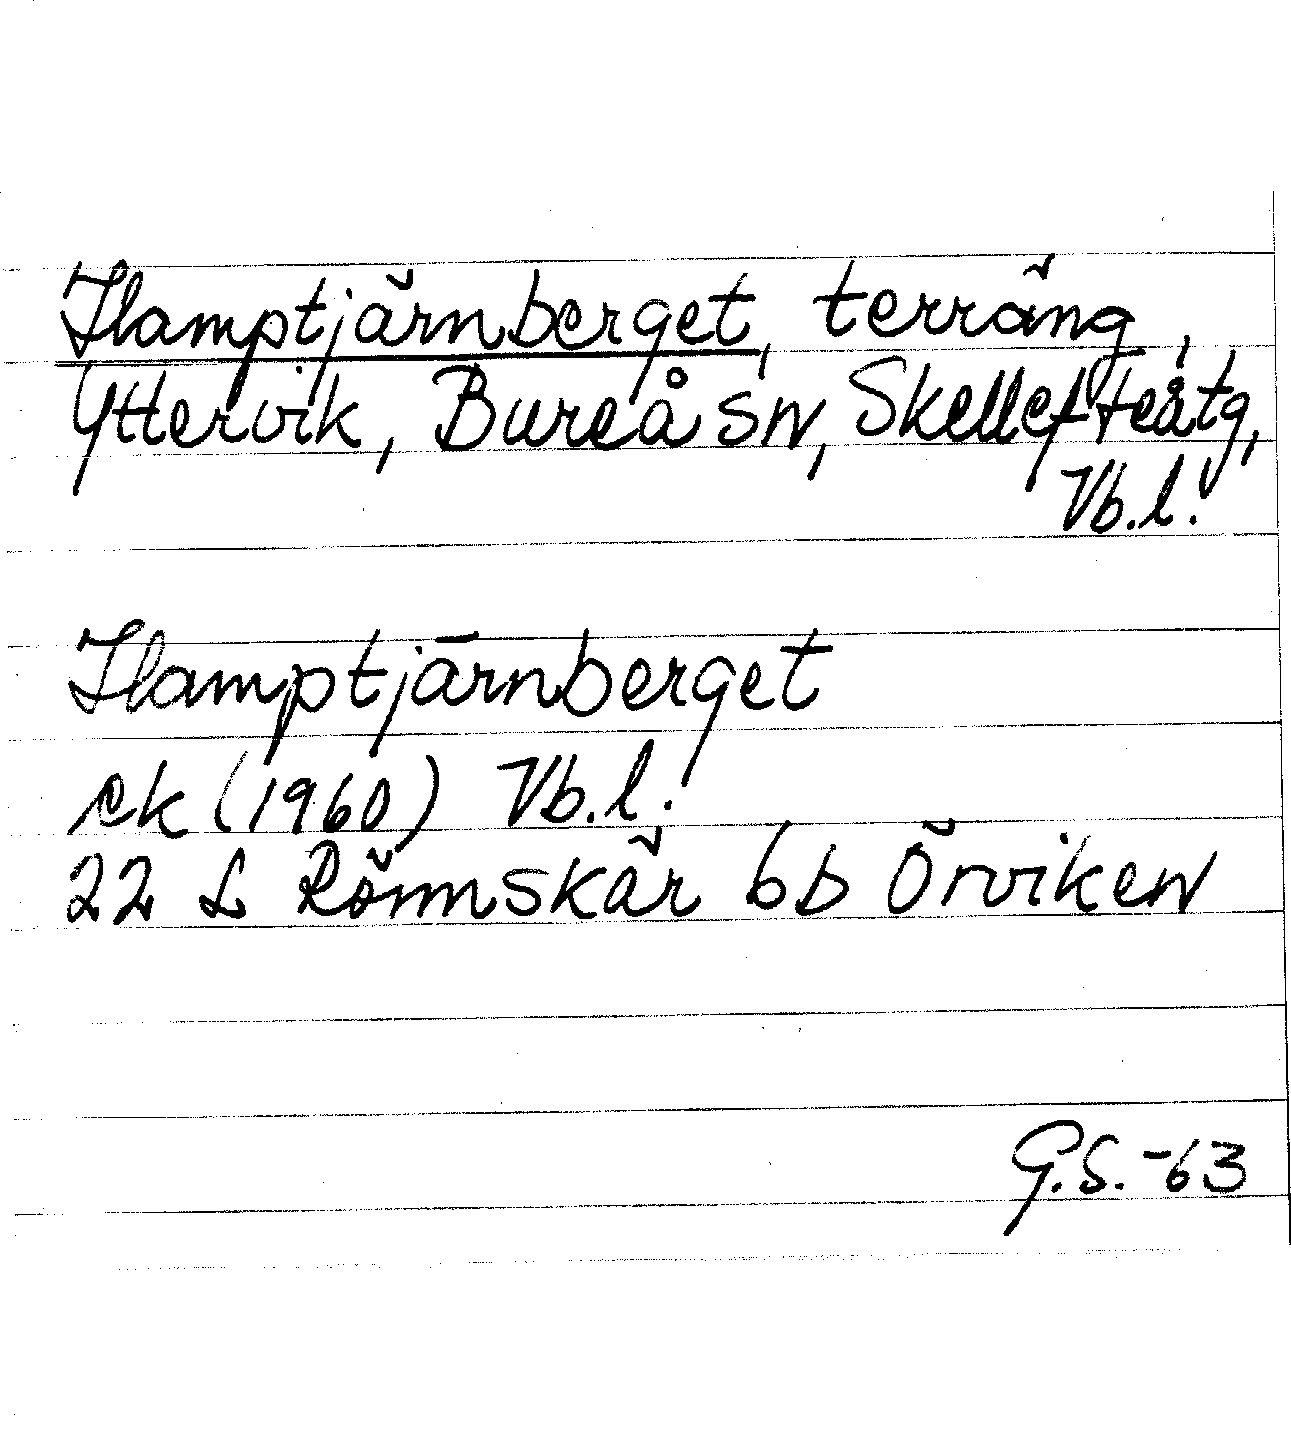 Hamptjärnberget, terräng,
Yttervik, Bureå sn, Skellefteå tg,
Vb.l.
Hamptjärnberget
ek (1960) Vb.l.
22 L Rönnskär 6b Örviken
G.S.-63